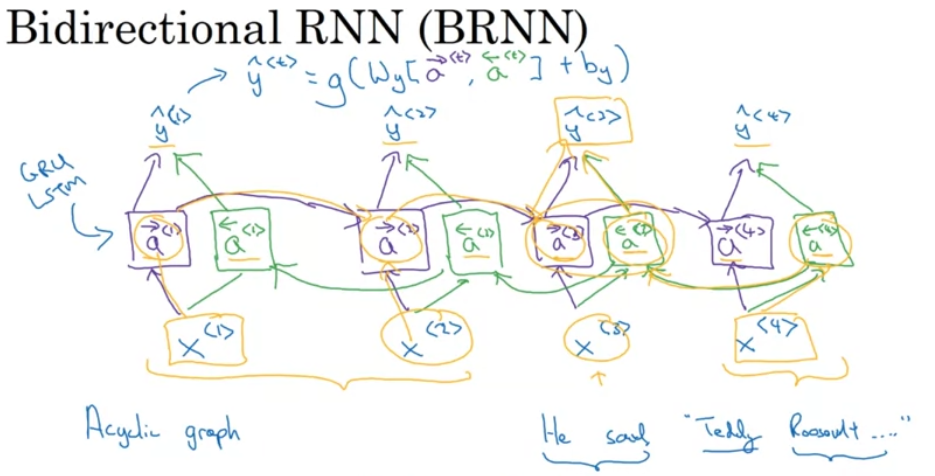 Bidirectional RNN (BRNN)
ŷ<t> = g(Wy[a→<t>, a←<t>] + by)
ŷ<1> ŷ<2> ŷ<3> ŷ<4>
GRU
LSTM
a→<1> a←<1> a→<2> a←<2> a→<3> a←<3> a→<4> a←<4>
x<1> x<2> x<3> x<4>
Acyclic graph He said, "Teddy Roosevelt ...."